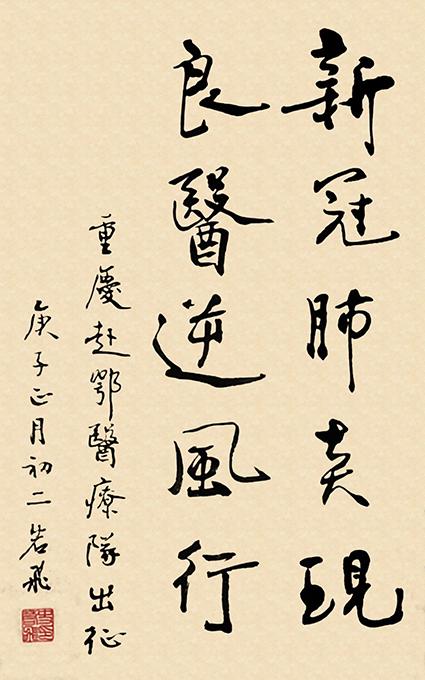 新冠肺炎現
良醫逆風行
重慶赴鄂醫療隊出征
庚子正月初二若飛